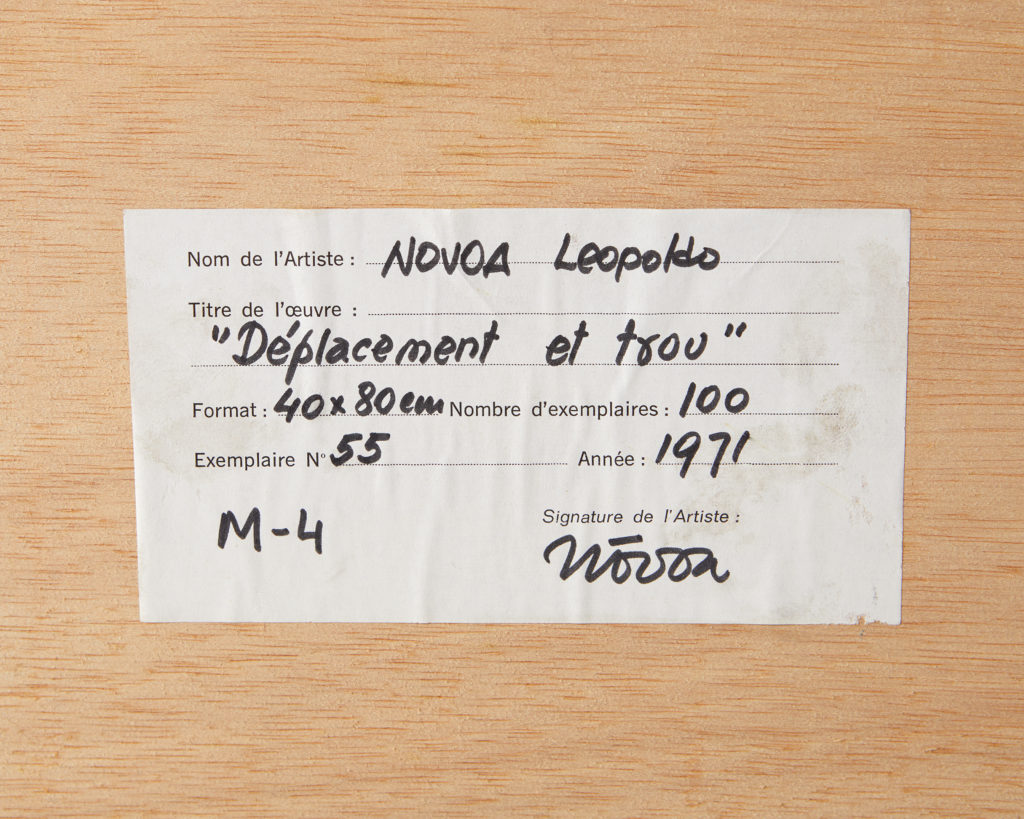 Nom de l'Artiste : NOVOA Leopoldo
Titre de l'œuvre :
"Déplacement et trou"
Format : 40x80cm Nombre d'exemplaires : 100
Exemplaire N° 55 Année : 1971
Signature de l'Artiste :
M-4 Nōvoa